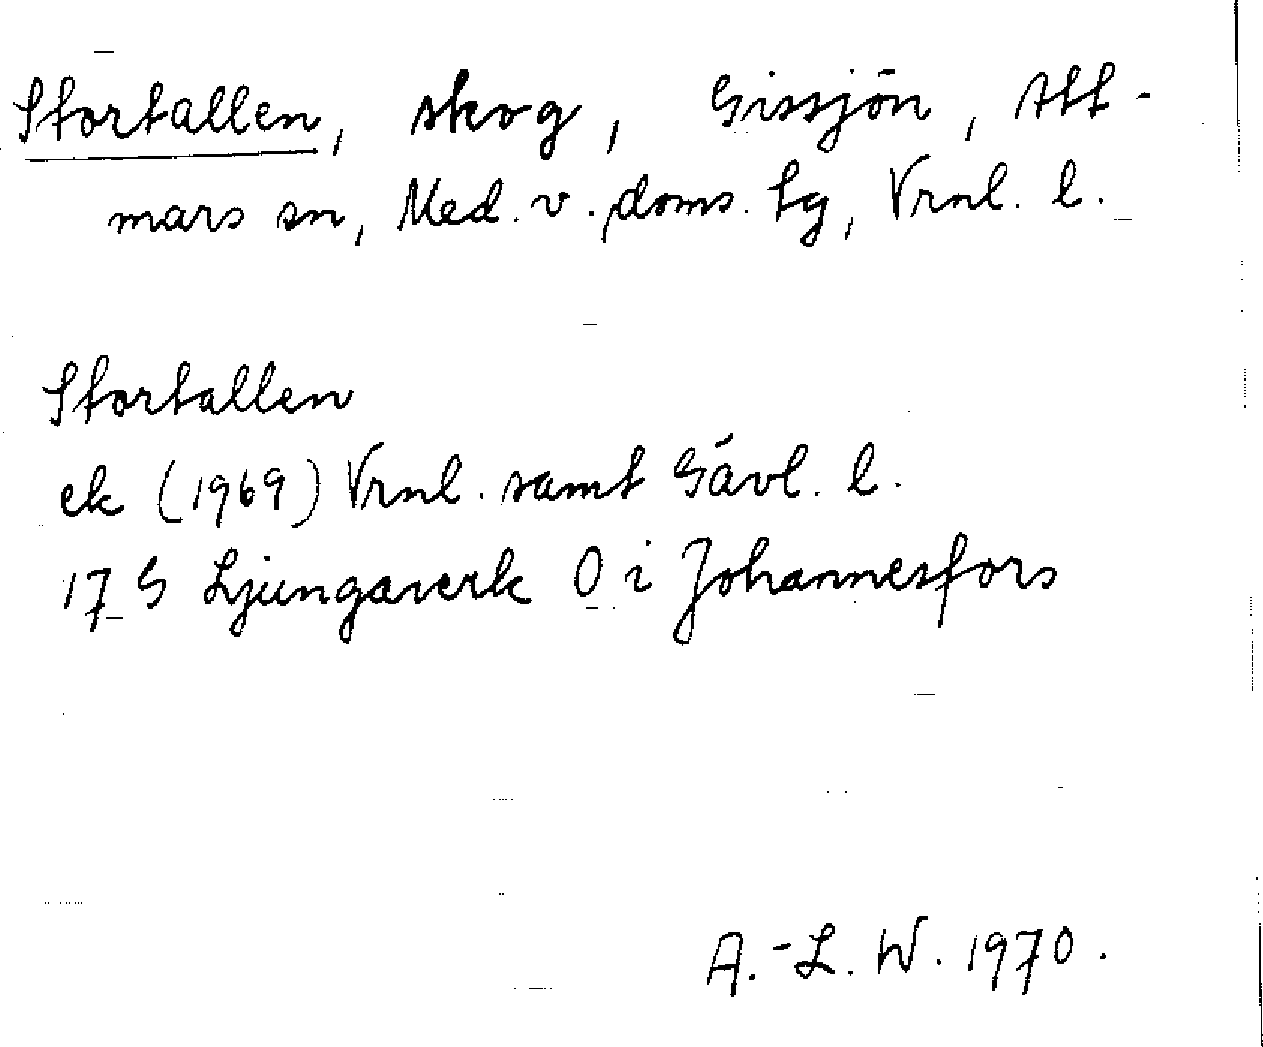 Stortallen, skog, Gissjön, Att-
mars sn, Med. v. doms. tg, Vrnl. l.
Stortallen
ek (1969) Vrnl. samt Gävl. l.
17 G Ljungaverk O i Johannesfors
A.-L. W. 1970.